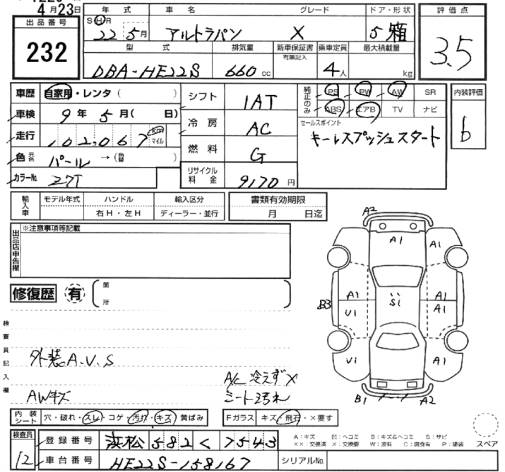 4月23日
出品番号
232
年式 車名 グレード ドア・形状
S H 22年5月 アルトラパン X 5 箱
型式 排気量 新車保証書 有無記入 乗車定員 最大積載量
DBA-HE22S 660cc 4人 kg
評価点
3.5
車歴 自家用・レンタ( )
車検 9年5月( 日)
走行 102067 km マイル
色 元色 パール → (替色 )
カラーNo. Z7T
シフト 1AT
冷房 AC
燃料 G
リサイクル料金 9170円
純正のみ PS PW AW SR
ABS エアB TV ナビ
セールスポイント
キーレスプッシュスタート
内装評価
b
輸入車 モデル年式 ハンドル 輸入区分
右H・左H ディーラー・並行
書類有効期限
月 日迄
出品店申告欄
※注意事項等記載
修復歴 有 箇所
検査員記入欄
外装A.U.S
AWキズ
A/C 冷えず X
シート汚れ
A2
A1 A1
B3 A1 U1 S1 A1 U1
A1 A1
B1 A2
内装シート 穴・破れ・スレ・コゲ・汚れ・キズ・黄ばみ
Fガラス キズ・飛石・X要す
検査員
12
登録番号 浜松 582 く 7543
車台番号 HE22S-158167
シリアルNo.
スペア